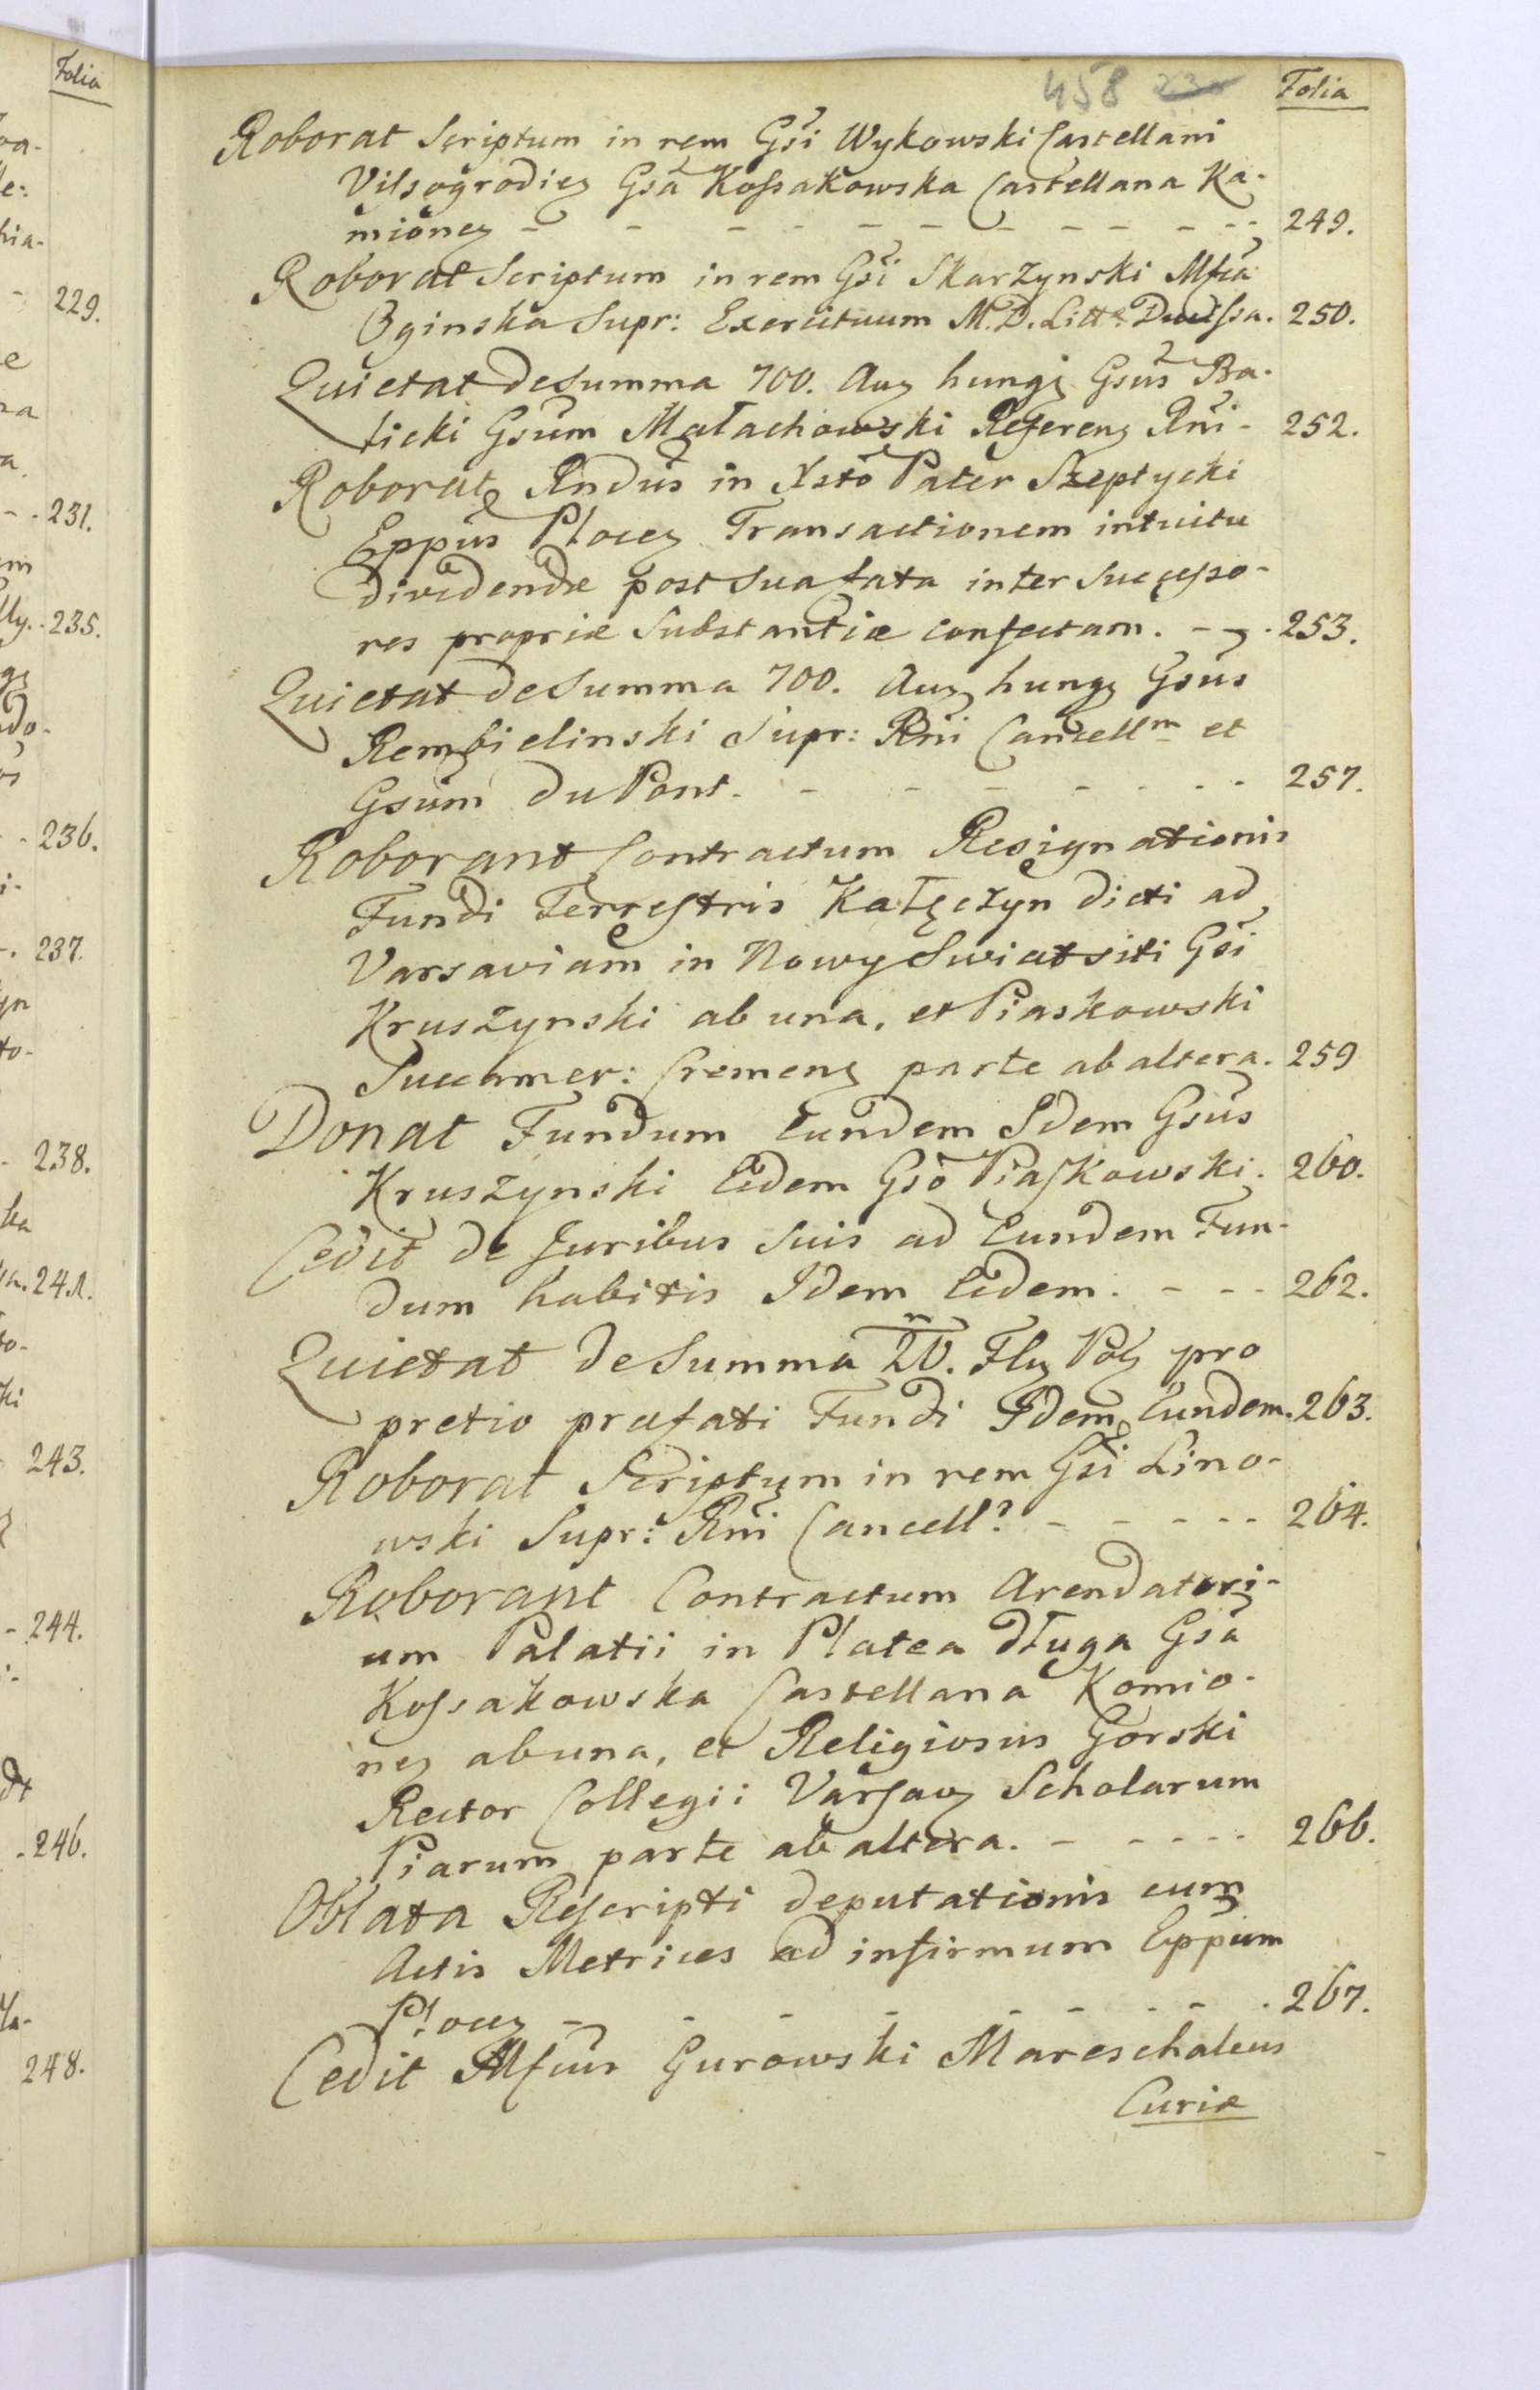 Folia
229.
231.
235.
236.
237.
238.
241.
243.
244.
246.
248.
458
Folia
Roborat Scriptum in rem Gsi Wykowski Castellani
Vissogrodieg Gsa Kossakowska Castellana Ka-
mioneg - - - - - - - - 249.
Roborat Scriptum in rem Gsi Skarzynski Mfca
Oginska Supr: Exercituum M. D. Litt: Ducissa. 250.
Quietat de Summa 700. Aug hung Gsus Ba-
licki Gsum Małachowski Refereng Rni - 252.
Roborat Rndus in Xsto Pater Szeptycki
Eppus Ploceg Transactionem intuitu
dividendæ post sua fata inter Successo-
res propriæ Substantiæ confectam. - - . 253.
Quietat de Summa 700. Aug hung Gsus
Rembielinski Supr: Rni Cancellm et
Gsum du Pont. - - - - - - - 257.
Roborant Contractum Resignationis
Fundi Terrestris Kałęczyn dicti ad
Varsaviam in Nowy Swiat siti Gsi
Kruszynski ab una, et Piaskowski
Succamer: Cremeng parte ab altera. 259
Donat Fundum Eundem Idem Gsus
Kruszynski Eidem Gso Piaskowski. 260.
Cedit de Juribus Suis ad Eundem Fun-
dum habitis Idem Eidem. - - - 262.
Quietat de Summa 20. Flg Polg pro
pretio præfati Fundi Idem Eundem. 263.
Roborat Scriptum in rem Gsi Lino-
wski Supr: Rni Cancell? - - - - - 264.
Roborant Contractum Arendatori-
um Palatii in Platea Długa Gsa
Kossakowska Castellana Komio-
neg ab una, et Religiosus Gorski
Rector Collegii Varsavg Scholarum
Piarum parte ab altera. - - - - - 266.
Oblata Rescripti deputationis cum
Actis Metrices ad infirmum Eppum
Plocg - - - - - - - . 267.
Cedit Mfcus Gurowski Mareschalcus
Curiæ